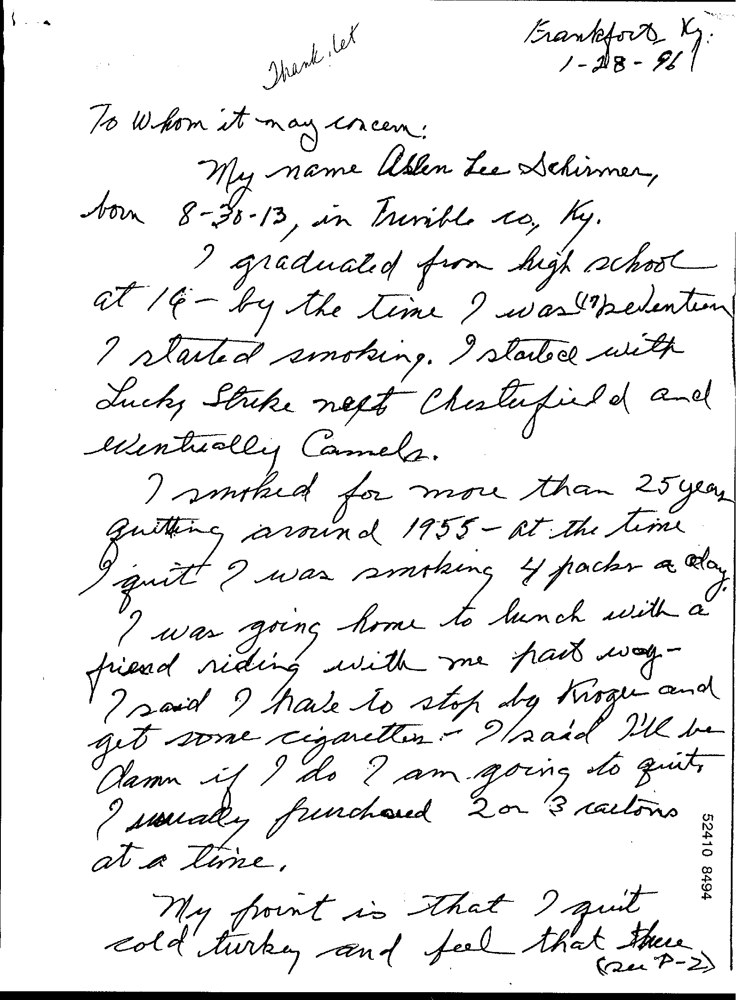 Thank. let
Frankfort, Ky:
1-28-96
To Whom it may concern:
My name Allen Lee Schirmer,
born 8-30-13, in Trimble co, Ky.
I graduated from high school
at 16 - by the time I was (17) seventeen
I started smoking. I started with
Lucky Strike next Chesterfield and
eventually Camels.
I smoked for more than 25 years
quitting around 1955 - at the time
I quit I was smoking 4 packs a day.
I was going home to lunch with a
friend riding with me part way -
I said I have to stop by Kroger and
get some cigarettes - I said I'll be
damn if I do I am going to quit.
I usually purchased 2 or 3 cartons
at a time.
My point is that I quit
cold turkey and feel that these
(see P-2)
52410 8494